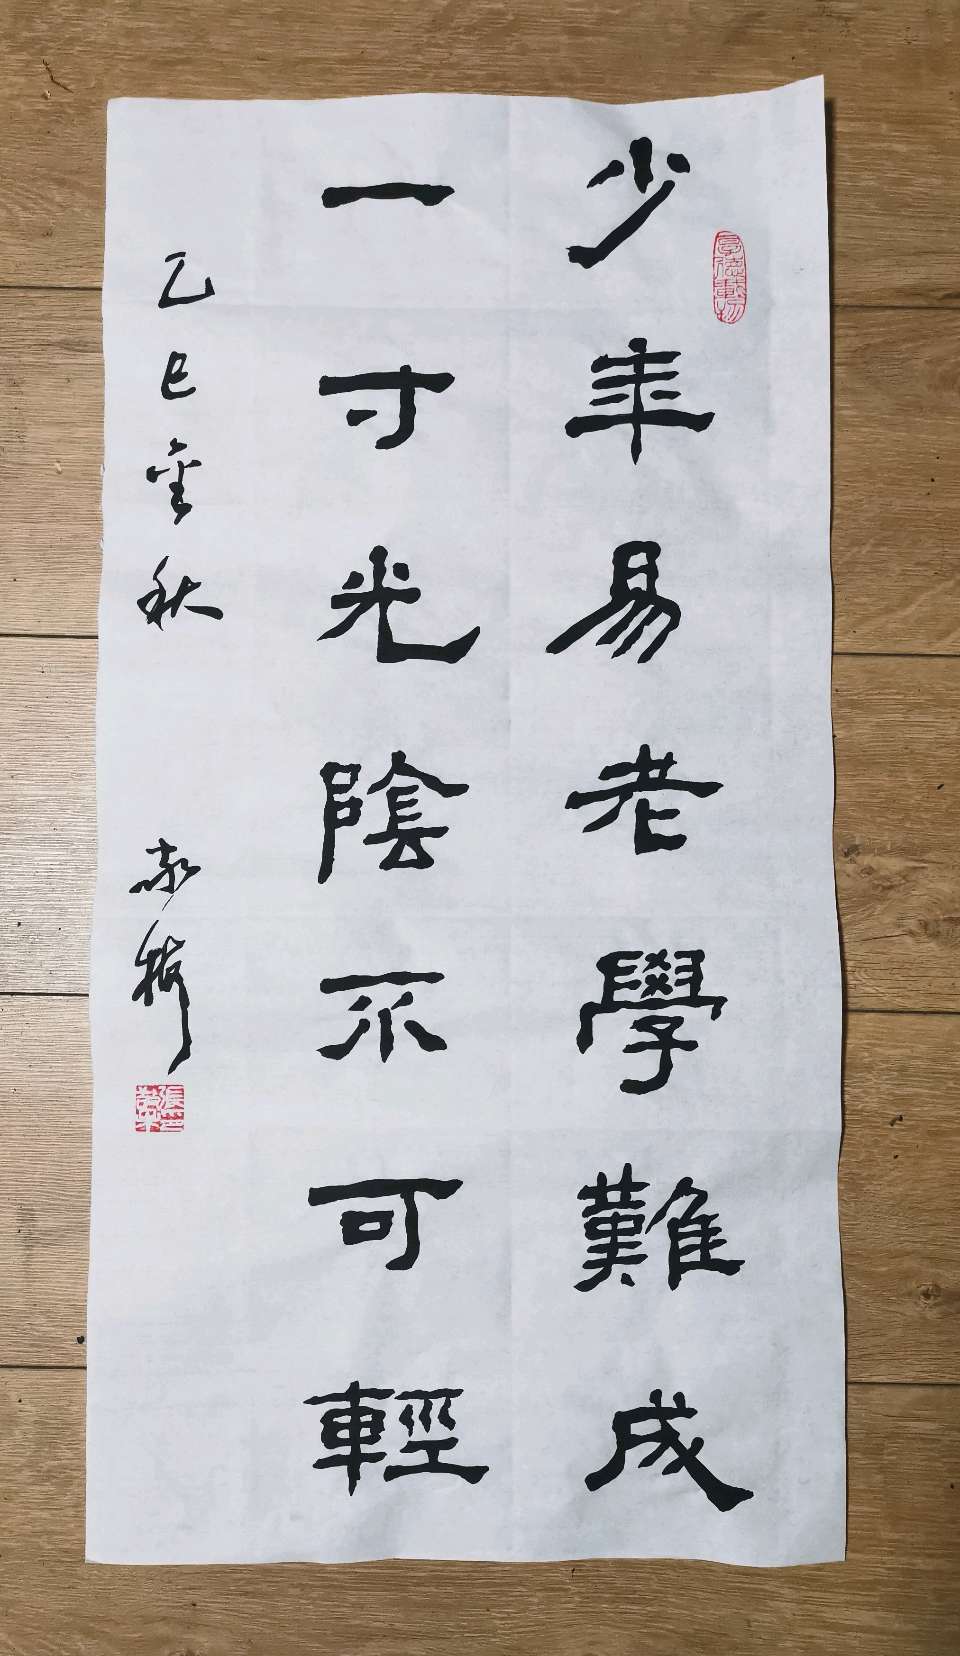 少年易老學難成
一寸光陰不可輕
乙巳金秋
厚德載物